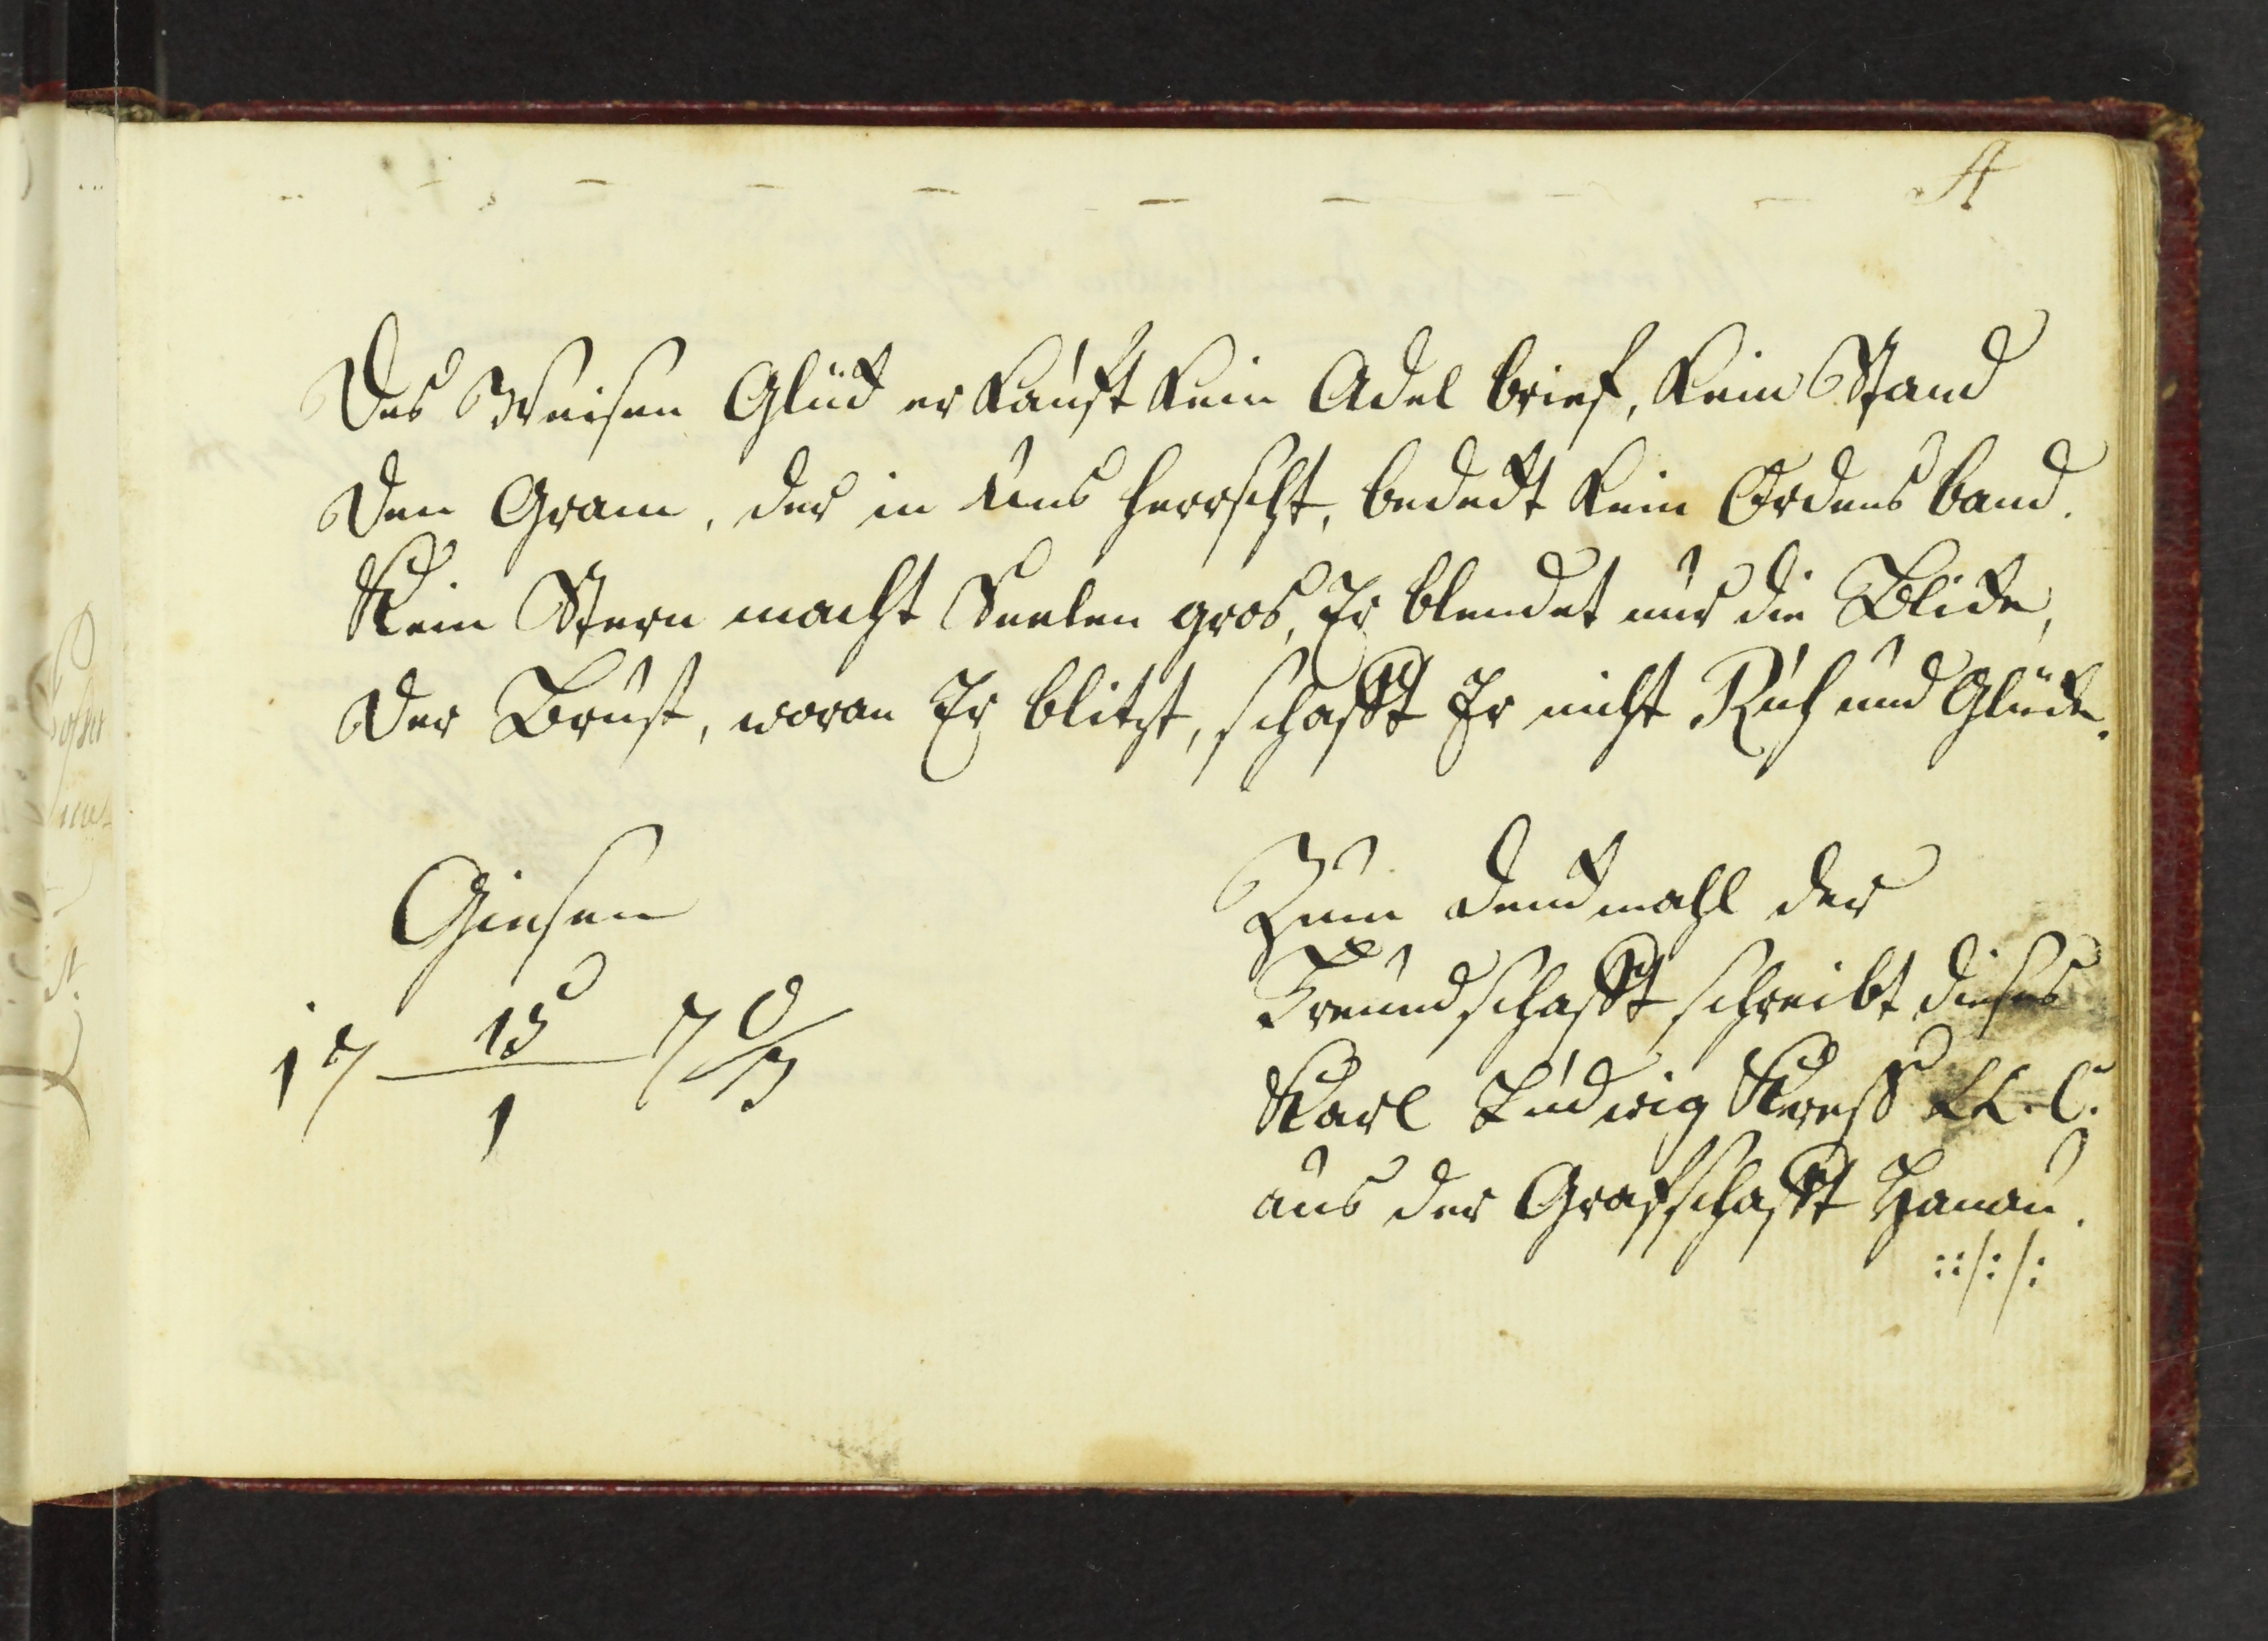 A
Des Weisen Glück erkauft kein Adel brief, kein Stand
Den Gram, der in uns herrscht, bedeckt kein Ordens band.
Kein Stern macht Seelen gros, Er blendet nur die Blicke,
Der Brust, woran Er blitzt, schafft Er nicht Ruh und Glücke.
Giesen
17 15/1 70
Zum Denckmahl der
Freundschafft schreibt dieses
Karl Ludwig Kress LL. C.
aus der Grafschafft Hanau.